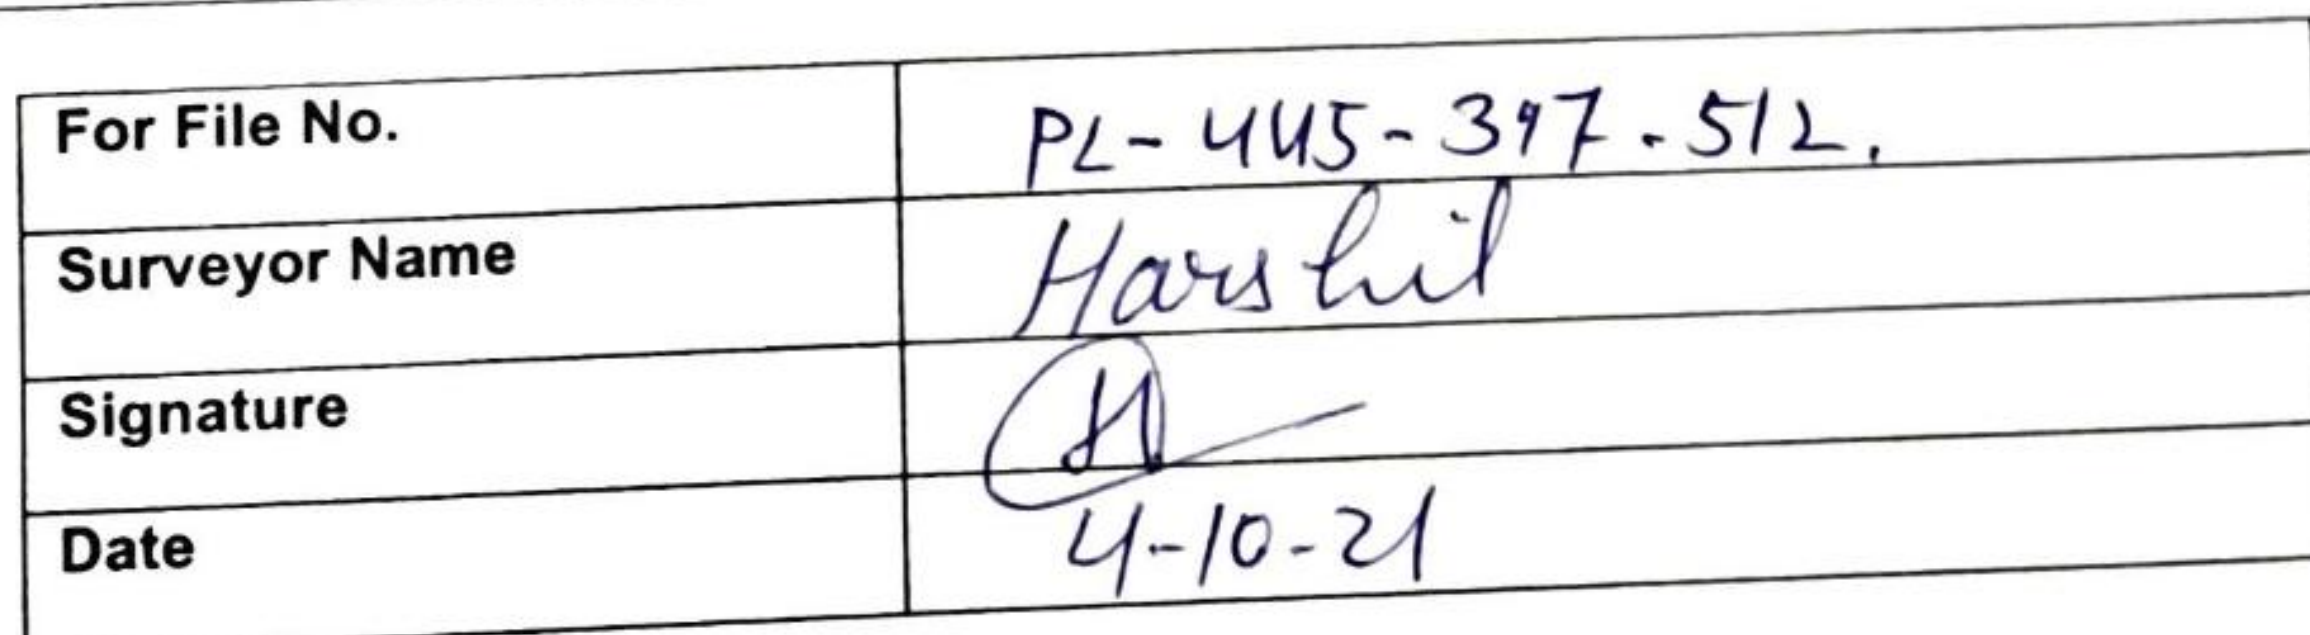 For File No. PL-445-397-512.
Surveyor Name Harshil
Signature
Date 4-10-21